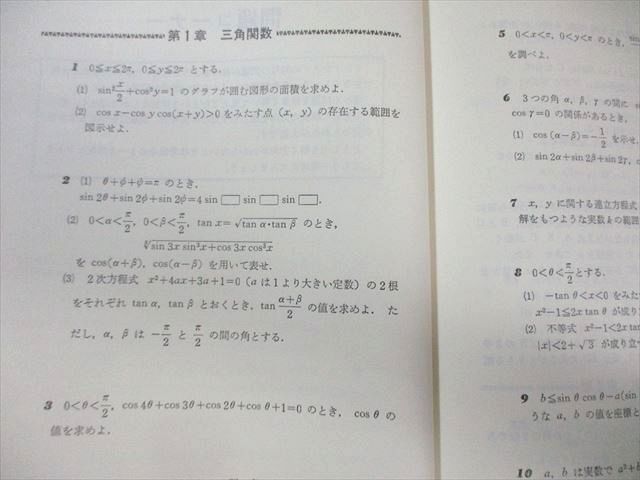 第1章 三角関数
1 0≦x≦2π, 0≦y≦2π とする.
(1) sin²x/2+cos²y=1 のグラフが囲む図形の面積を求めよ.
(2) cos x−cos y cos(x+y)>0 をみたす点 (x, y) の存在する範囲を
図示せよ.
2 (1) θ+φ+ψ=π のとき,
sin 2θ+sin 2φ+sin 2ψ=4 sin□ sin□ sin□.
(2) 0<α<π/2, 0<β<π/2, tan x=√(tan α・tan β) のとき,
sin 3x sin³x+cos 3x cos³x
を cos(α+β), cos(α−β) を用いて表せ.
(3) 2次方程式 x²+4ax+3a+1=0 (a は1より大きい定数) の2根
をそれぞれ tan α, tan β とおくとき, tan (α+β)/2 の値を求めよ. た
だし, α, β は −π/2 と π/2 の間の角とする.
3 0<θ<π/2, cos 4θ+cos 3θ+cos 2θ+cos θ+1=0 のとき, cos θ の
値を求めよ.
5 0<x<π, 0<y<π のとき,
を調べよ.
6 3つの角 α, β, γ の間に
cos γ=0 の関係があるとき,
(1) cos (α−β)=−1/2 を示せ.
(2) sin 2α+sin 2β+sin 2γ,
7 x, y に関する連立方程式
解をもつような実数 k の範囲
8 0<θ<π/2 とする.
(1) −tan θ<x<0 をみた
x²−1≦2x tan θ が成り
(2) 不等式 x²−1<2x tan
|x|<2+√3 が成り立つ
9 b≦sin θ cos θ−a(sin
うな a, b の値を座標と
10 a, b は実数で a²+b